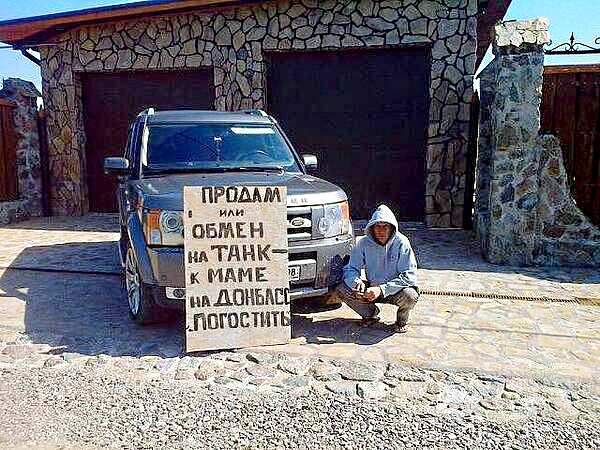 ПРОДАМ
ИЛИ
ОБМЕН
НА ТАНК-
К МАМЕ
НА ДОНБАСС
ПОГОСТИТЬ